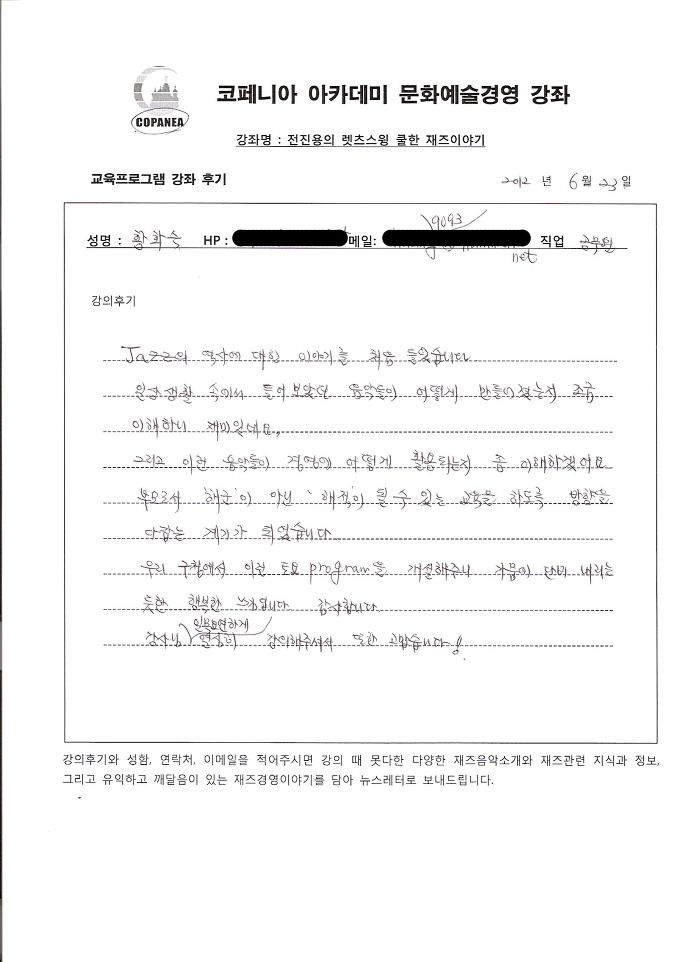 COPANEA
코페니아 아카데미 문화예술경영 강좌
강좌명 : 전진용의 렛츠스윙 쿨한 재즈이야기
교육프로그램 강좌 후기 2012 년 6 월 23 일
9093
성명 : 황학숙 HP : 메일: 직업 공무원
net
강의후기
Jazz의 역사에 대한 이야기를 처음 들었습니다
일상생활 속에서 들어 보았던 음악들이 어떻게 만들어 졌는지 조금
이해하니 재미있네요.
그리고 이런 음악들이 경영에 어떻게 활용되는지 좀 이해하겠어요
부모로서 '해군'이 아닌 '해적'이 될 수 있는 교육을 하도록 방향을
다잡는 계기가 되었습니다
우리 구청에서 이런 토요 program을 개설해주니 가뭄이 단비 내리는
듯한 행복한 느낌입니다 감사합니다
일목요연하게
강사님 열성히 강의해주셔서 또한 고맙습니다!
강의후기와 성함, 연락처, 이메일을 적어주시면 강의 때 못다한 다양한 재즈음악소개와 재즈관련 지식과 정보,
그리고 유익하고 깨달음이 있는 재즈경영이야기를 담아 뉴스레터로 보내드립니다.